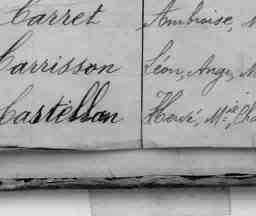 Carret Ambroise, M
Carrisson Léon, Ange, M
Castellan Hervé, Mie, Cha